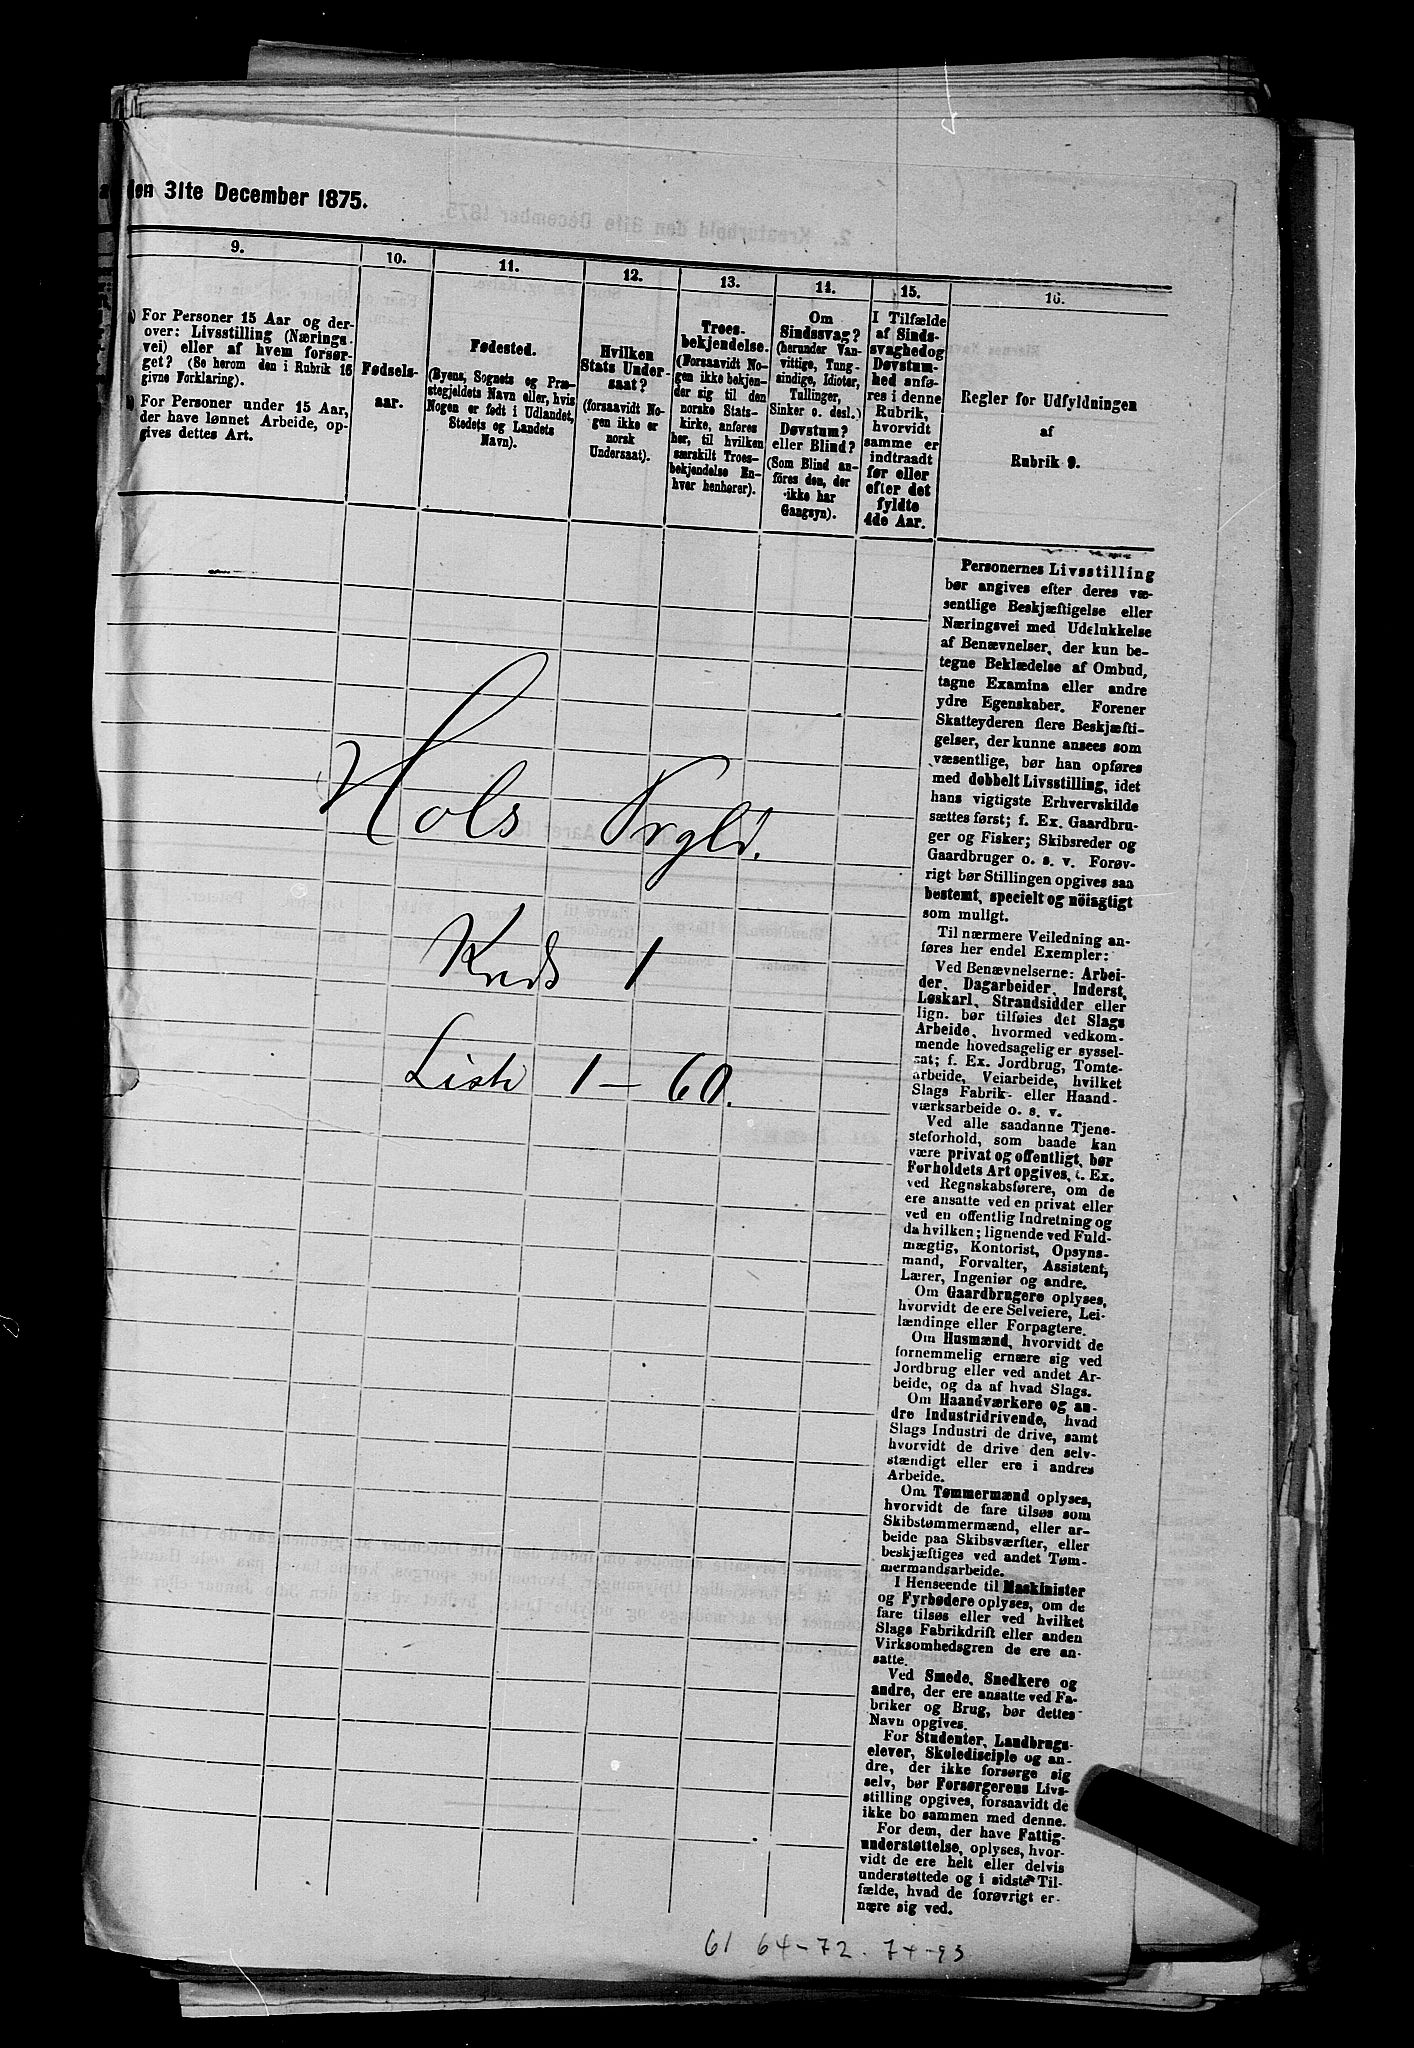 den 31te December 1875.
9.
10.
11.
12.
13.
14.
15.
16.
For Personer 15 Aar og der-
over: Livsstilling (Nærings
vei) eller af hvem forsør-
get? (Se herom den i Rubrik 16
givne Forklaring).
For Personer under 15 Aar,
der have lønnet Arbeide, op-
gives dettes Art.
Fødsels-
aar.
Fødested.
(Byens, Sognets og Præ-
stegjeldets Navn eller, hvis
Nogen er født i Udlandet,
Stedets og Landets
Navn).
Hvilken
Stats Under-
saat?
(forsaavidt No-
gen ikke er
norsk
Undersaat).
Troes-
bekjendelse.
(Forsaavidt No-
gen ikke bekjen-
der sig til den
norske Stats-
kirke, anføres
her, til hvilken
særskilt Troes-
bekjendelse En-
hver henhører).
Om
Sindssvag?
(herunder Van-
vittige, Tung-
sindige, Idioter,
Tullinger,
Sinker o. desl.)
Døvstum?
eller Blind?
(Som Blind an-
føres den, der
ikke har
Gangsyn).
I Tilfælde
af Sinds-
svaghed og
Døvstum-
hed anfø-
res i denne
Rubrik,
hvorvidt
samme er
indtraadt
før eller
efter det
fyldte
4de Aar.
Regler for Udfyldningen
af
Rubrik 9.
Personernes Livsstilling
bør angives efter deres væ-
sentlige Beskjæftigelse eller
Næringsvei med Udelukkelse
af Benævnelser, der kun be-
tegne Beklædelse af Ombud,
tagne Examina eller andre
ydre Egenskaber. Forener
Skatteyderen flere Beskjæfti-
gelser, der kunne ansees som
væsentlige, bør han opføres
med dobbelt Livsstilling, idet
hans vigtigste Erhvervskilde
sættes først; f. Ex. Gaardbru-
ger og Fisker; Skibsreder og
Gaardbruger o. s. v. Forøv-
rigt bør Stillingen opgives saa
bestemt, specielt og nöiagtigt
som muligt.
Til nærmere Veiledning an-
føres her endel Exempler:
Ved Benævnelserne: Arbei-
der, Dagarbeider, Inderst,
Løskarl, Strandsidder eller
lign. bør tilføies det Slags
Arbeide, hvormed vedkom-
mende hovedsagelig er syssel-
sat; f. Ex. Jordbrug, Tomte-
arbeide, Veiarbeide, hvilket
Slags Fabrik- eller Haand-
værksarbeide o. s. v.
Ved alle saadanne Tjene-
steforhold, som baade kan
være privat og offentligt, bør
Forholdets Art opgives, f. Ex.
ved Regnskabsførere, om de
ere ansatte ved en privat eller
ved en offentlig Indretning og
da hvilken; lignende ved Fuld-
mægtig, Kontorist, Opsyns-
mand, Forvalter, Assistent,
Lærer, Ingeniør og andre.
Om Gaardbrugere oplyses,
hvorvidt de ere Selveiere, Lei-
lændinge eller Forpagtere.
Om Husmænd, hvorvidt de
fornemmelig ernære sig ved
Jordbrug eller ved andet Ar-
beide, og da af hvad Slags.
Om Haandværkere og an-
dre Industridrivende, hvad
Slags Industri de drive, samt
hvorvidt de drive den selv-
stændigt eller ere i andres
Arbeide.
Om Tømmermænd oplyses,
hvorvidt de fare tilsøs som
Skibstømmermænd, eller ar-
beide paa Skibsværfter, eller
beskjæftiges ved andet Tøm-
mermandsarbeide.
I Henseende til Maskinister
og Fyrbødere oplyses, om de
fare tilsøs eller ved hvilket
Slags Fabrikdrift eller anden
Virksomhedsgren de ere an-
satte.
Ved Smede, Snedkere og
andre, der ere ansatte ved Fa-
briker og Brug, bør dettes
Navn opgives.
For Studenter, Landbrugs-
elever, Skoledisciple og an-
dre, der ikke forsørge sig
selv, bør Forsørgerens Livs-
stilling opgives, forsaavidt de
ikke bo sammen med denne.
For dem, der have Fattig-
understøttelse, oplyses, hvor-
vidt de ere helt eller delvis
understøttede og i sidste Til-
fælde, hvad de forøvrigt er-
nære sig ved.
Hols Prgld.
Kreds 1
Liste 1 - 60.
61 64-72. 74-93